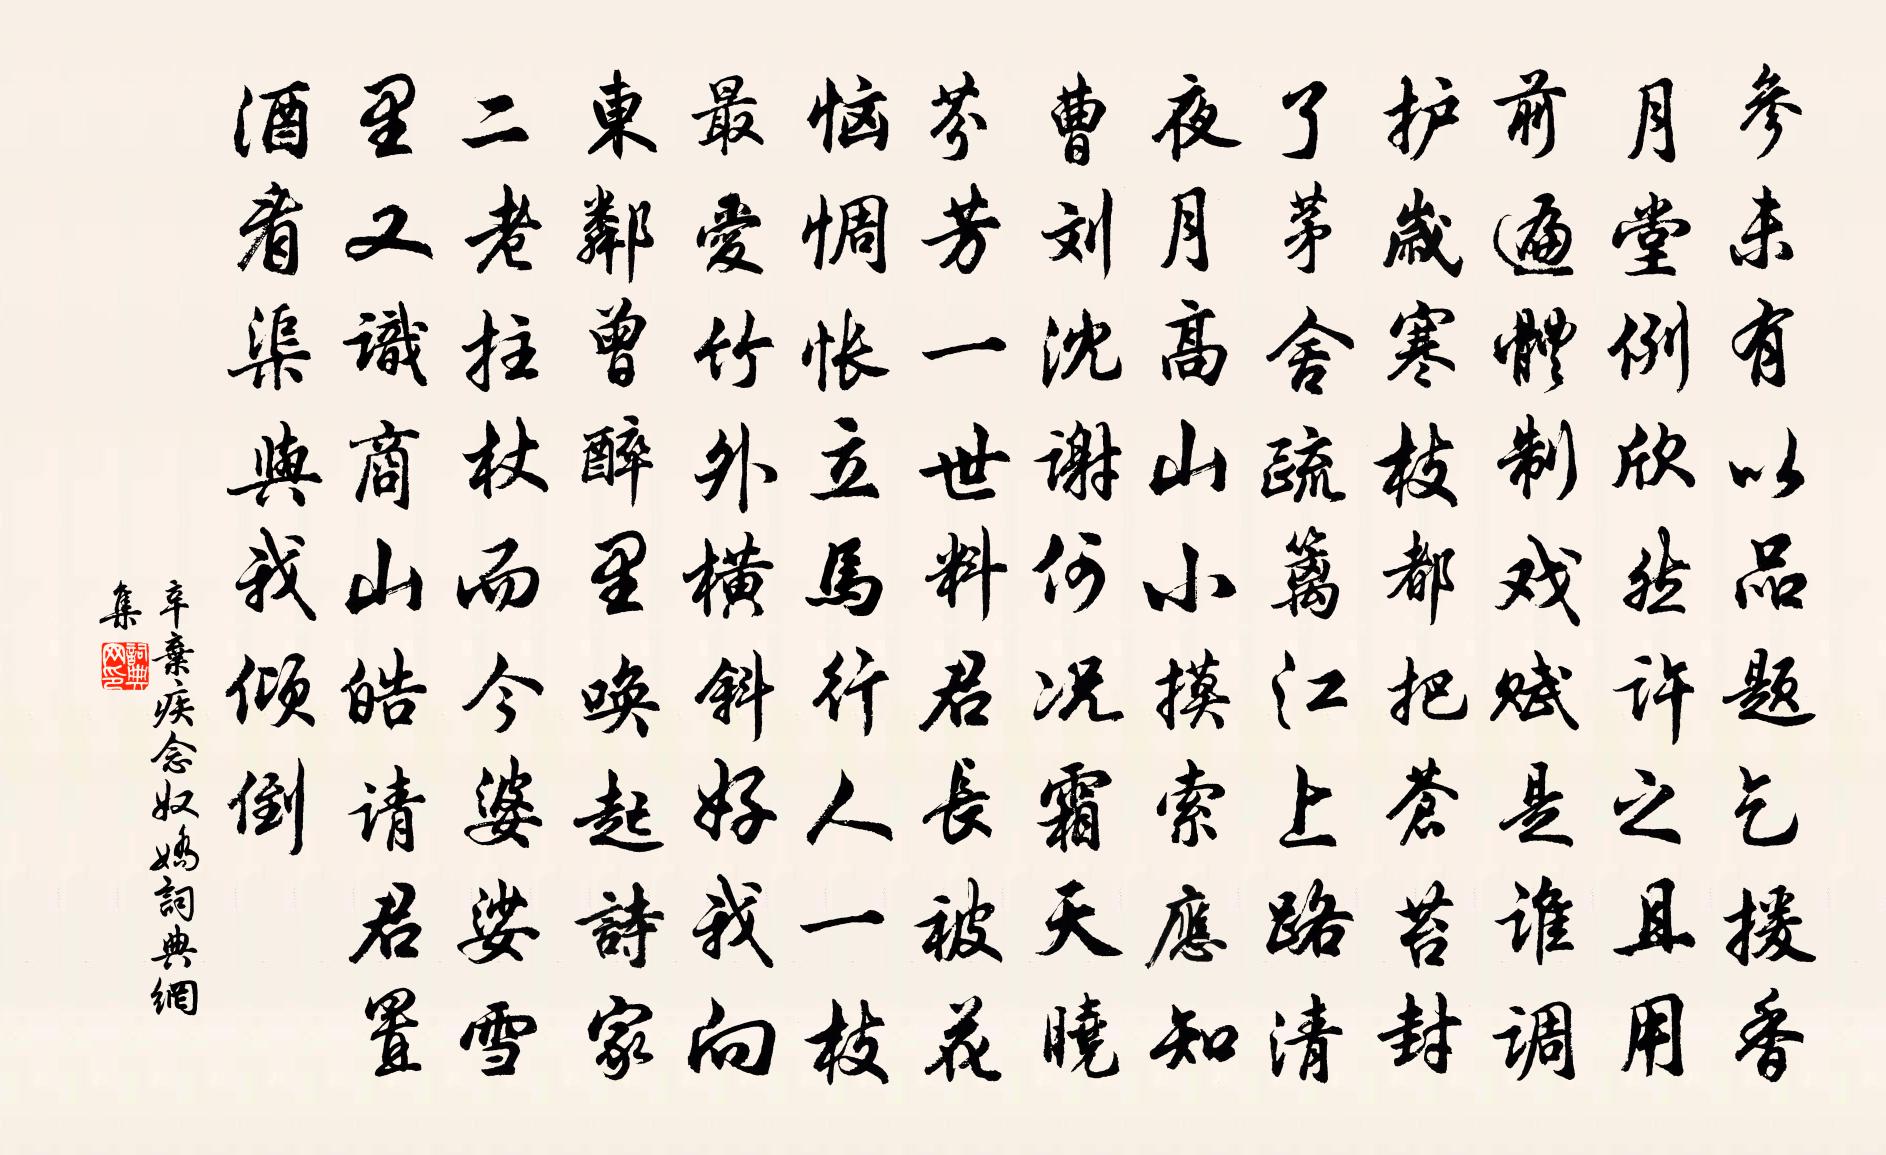 参未有以品题乞援香
月堂例欣然许之且用
前遍體制戏赋是谁调
护歳寒枝都把蒼苔封
了茅舍疏篱江上路清
夜月高山小摸索應知
曹刘沈谢何况霜天曉
芬芳一世料君長被花
恼惆怅立馬行人一枝
最愛竹外横斜好我向
東鄰曾醉里唤起詩家
二老拄杖而今婆娑雪
里又識商山皓请君置
酒看渠與我倾倒
辛棄疾念奴嬌詞典網
集
詞典网印